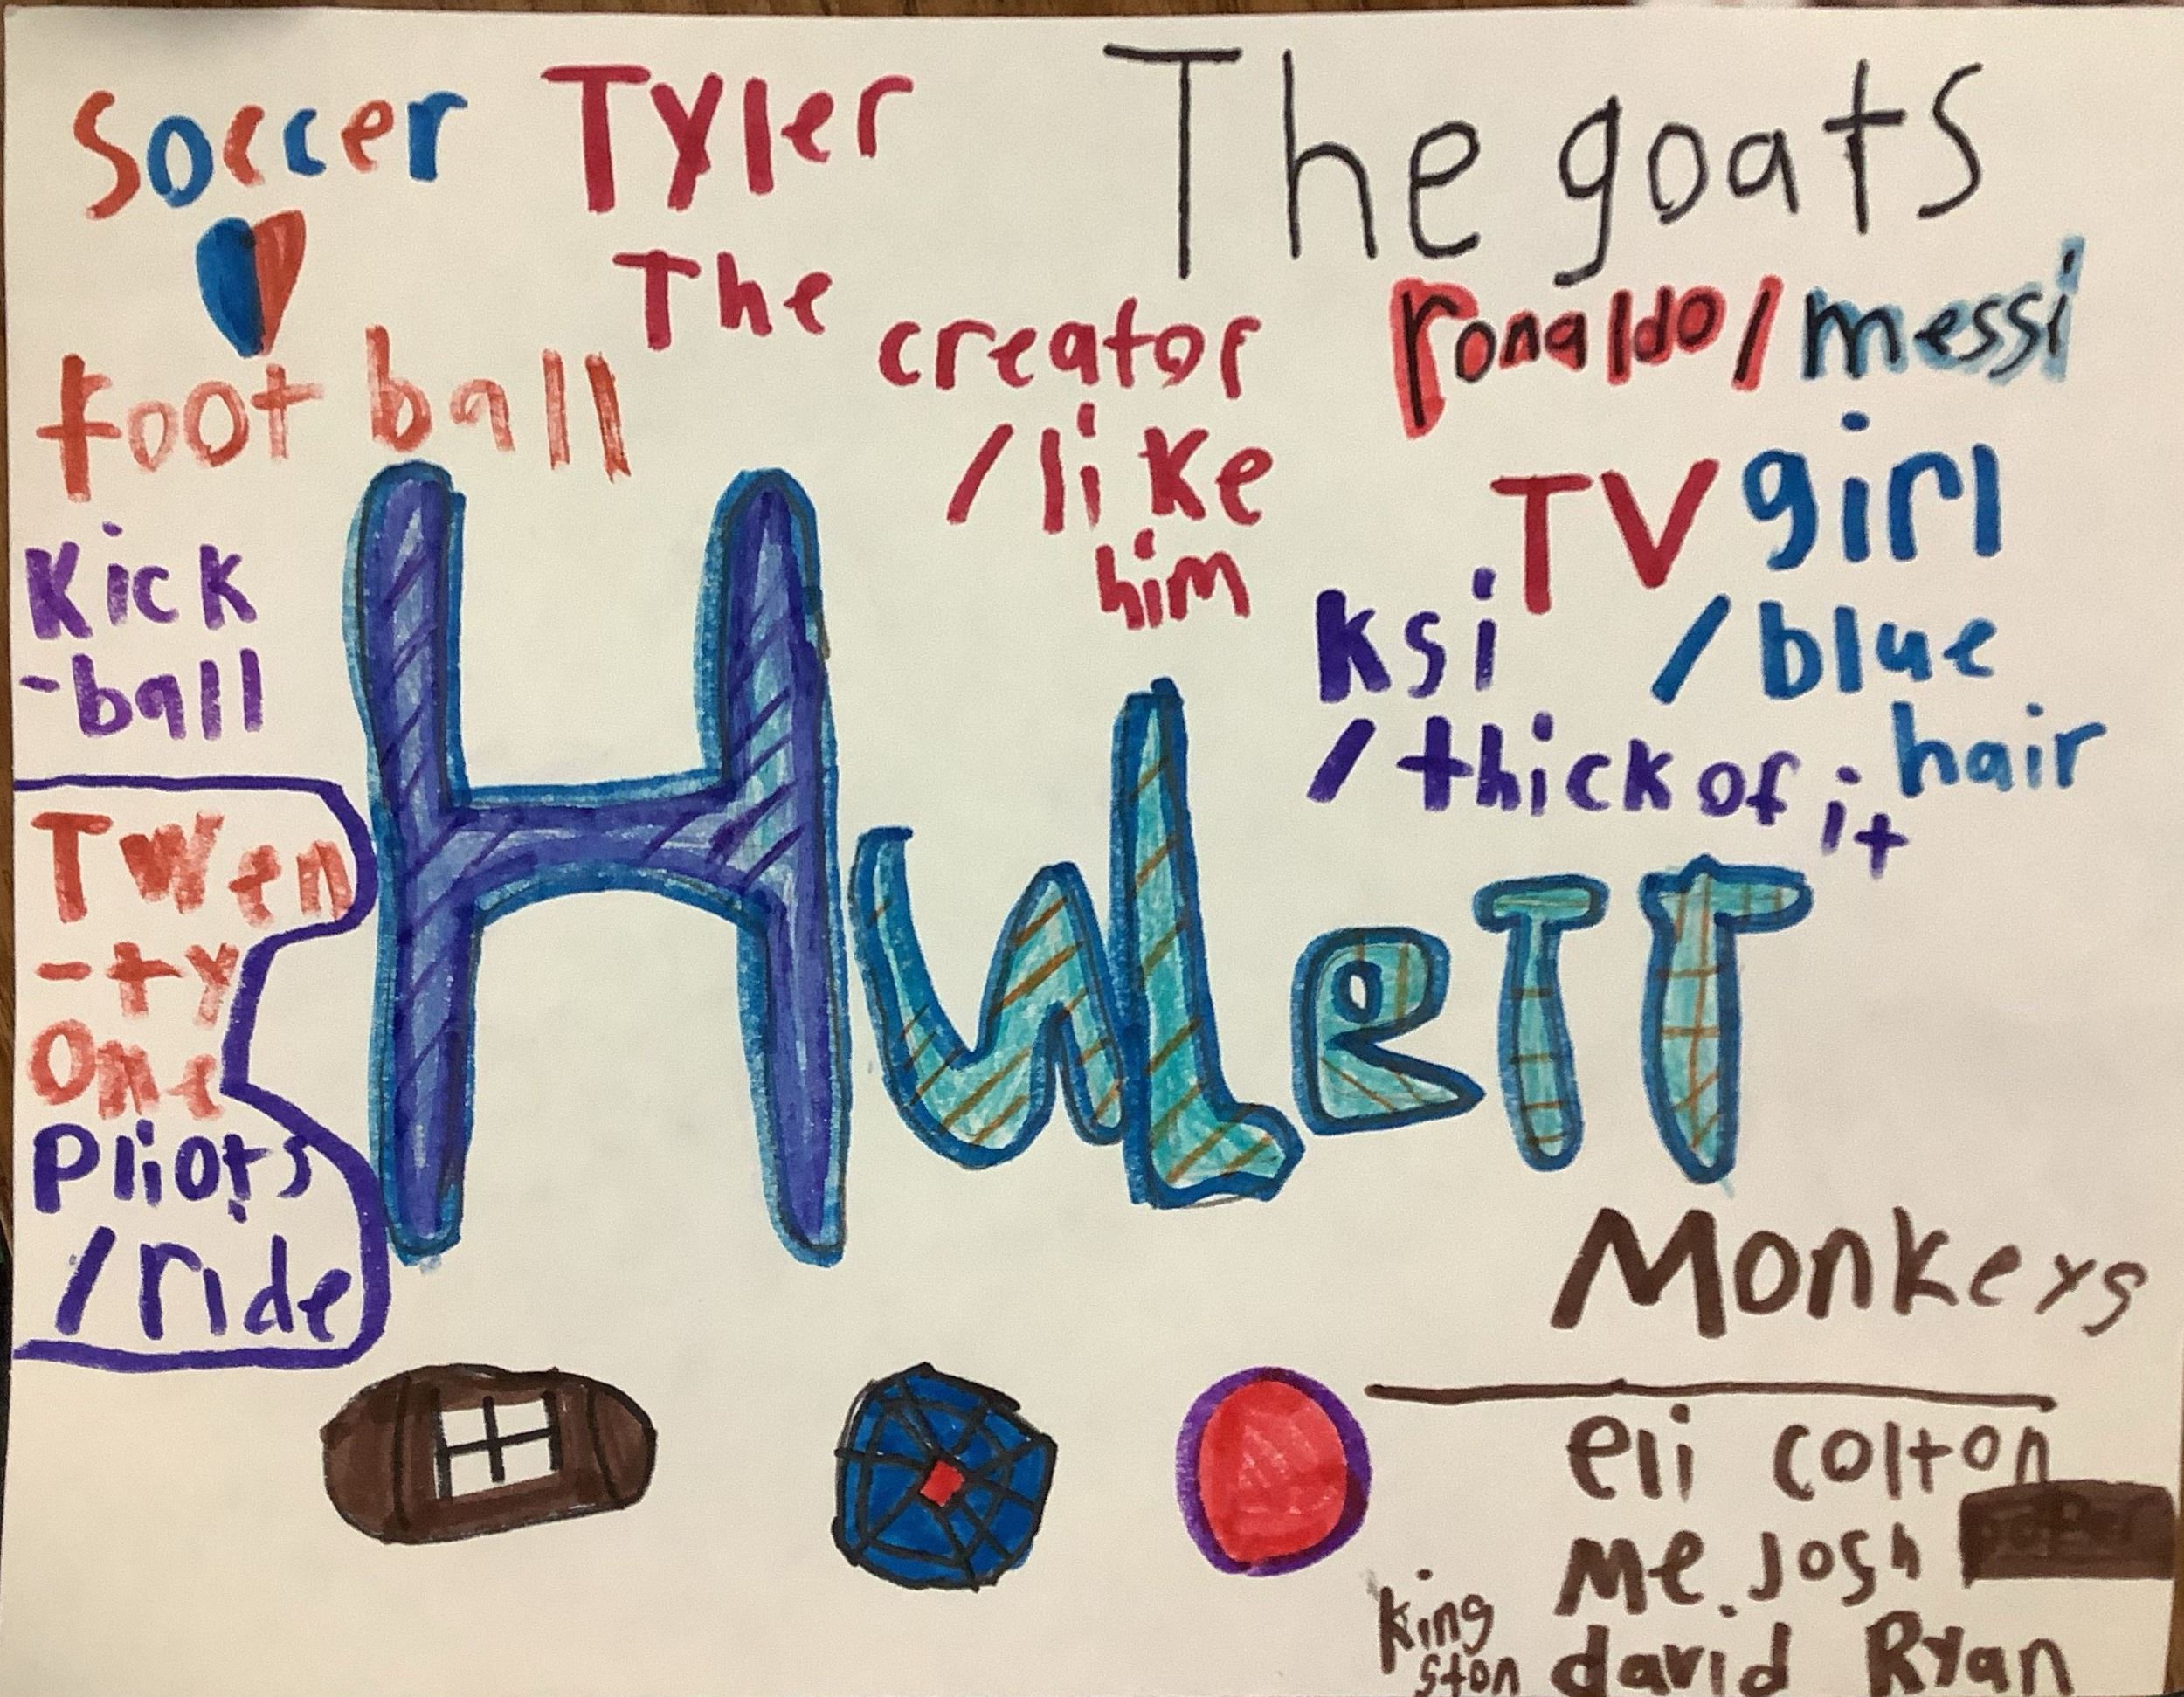 Soccer
football
Kick
-ball
Twen
-ty
One
Pliots
/ride
Tyler
The
creator
/like
him
The goats
ronaldo/messi
TV girl
/blue
hair
Ksi
/thick of it
HuLeTT
Monkeys
eli colton
me josh
king
ston
david Ryan